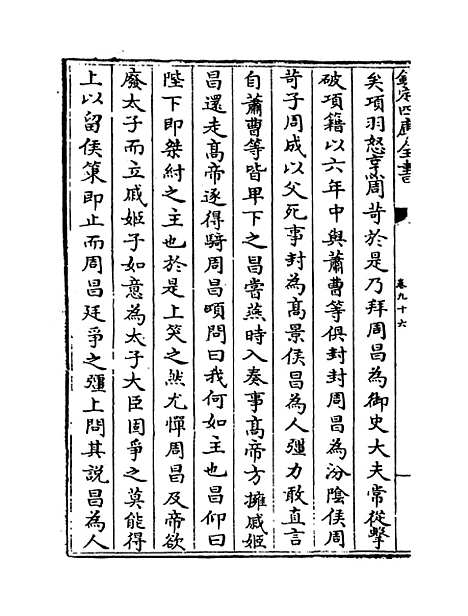 欽定四庫全書
卷九十六
矣項羽怒亨周苛於是乃拜周昌為御史大夫常從擊
破項籍以六年中與蕭曹等俱封封周昌為汾陰侯周
苛子周成以父死事封為髙景侯昌為人彊力敢直言
自蕭曹等皆卑下之昌嘗燕時入奏事髙帝方擁戚姬
昌還走髙帝逐得騎周昌項問曰我何如主也昌仰曰
陛下即桀紂之主也於是上笑之然尤憚周昌及帝欲
廢太子而立戚姬子如意為太子大臣固爭之莫能得
上以留侯策即止而周昌廷爭之彊上問其説昌為人